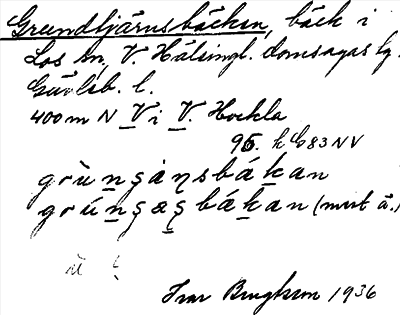 Grundtjärnsbäcken, bäck i
Los sn, V. Hälsingl. domsagas tg.
Gävleb. l.
400 m N V i V. Hockla
96. h G 83 NV
grùn̲ṣánsbák̲an
grún̲ṣəṣbák̲an (mest å.)
Ivar Bengtsson 1936